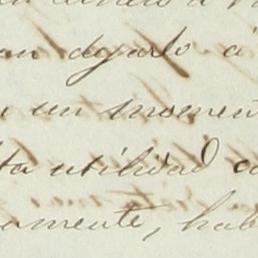 dejarlo á
un momen
ta utilidad c
amente, hab